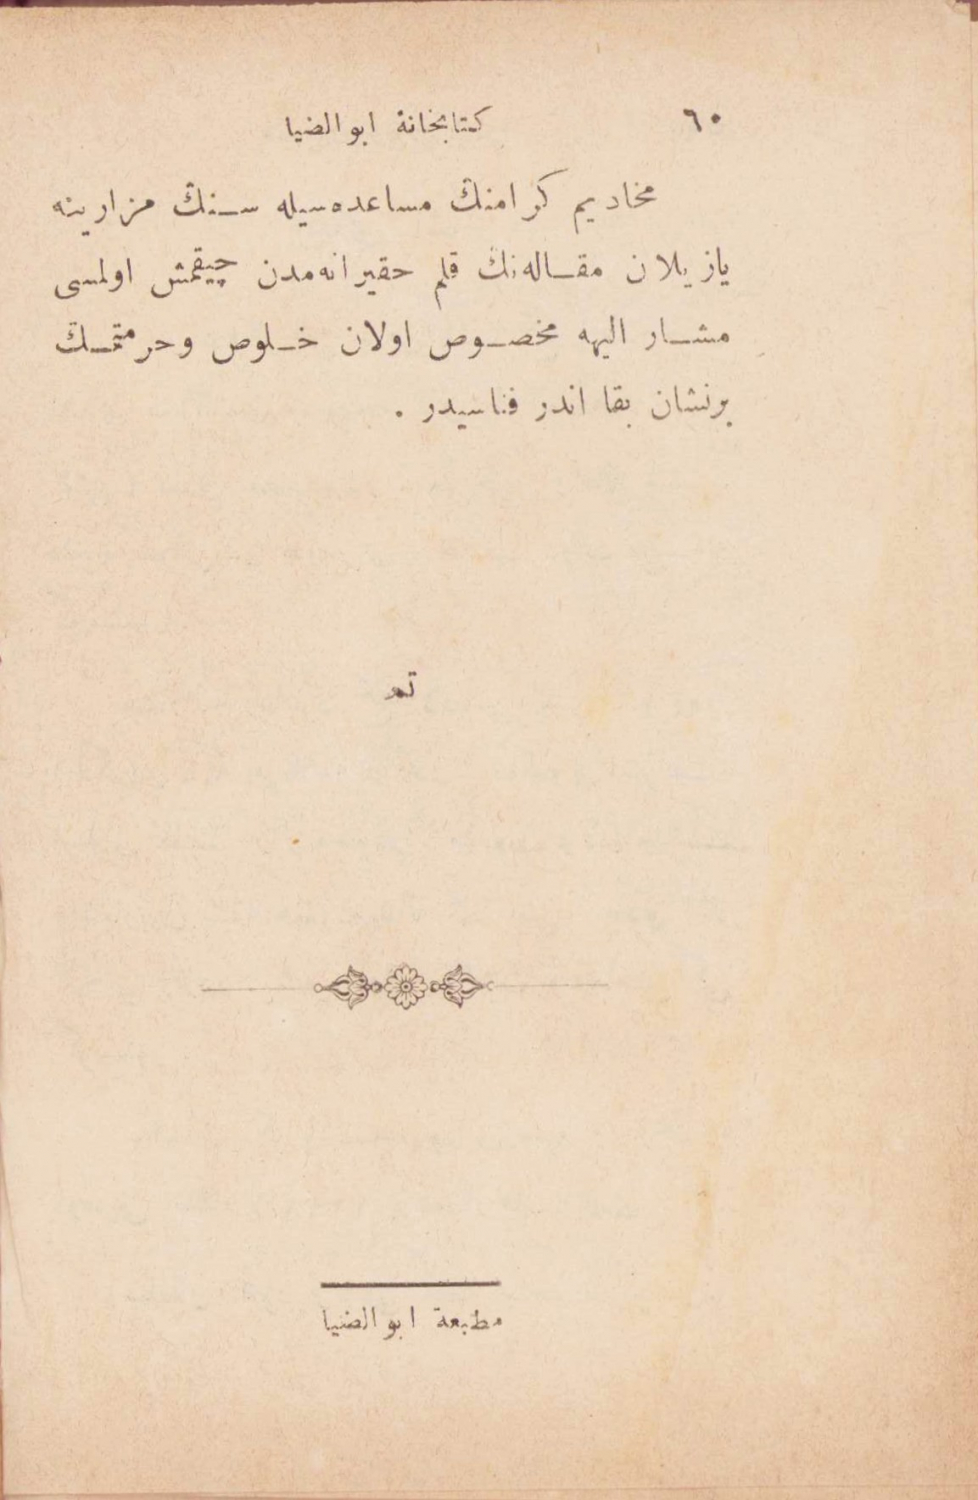 ٦٠
كتابخانهٔ ابو الضيا
مخاديم كرامنك مساعده‌سيله سـنك مزارينه
يازيلان مقـاله‌نك قلم حقيرانه‌مدن چيقمش اولمسى
مشـار اليه مخصـوص اولان خـلوص وحرمتمـك
برنشان بقا اندر فناسيدر .
تم
مطبعهٔ ابو الضيا